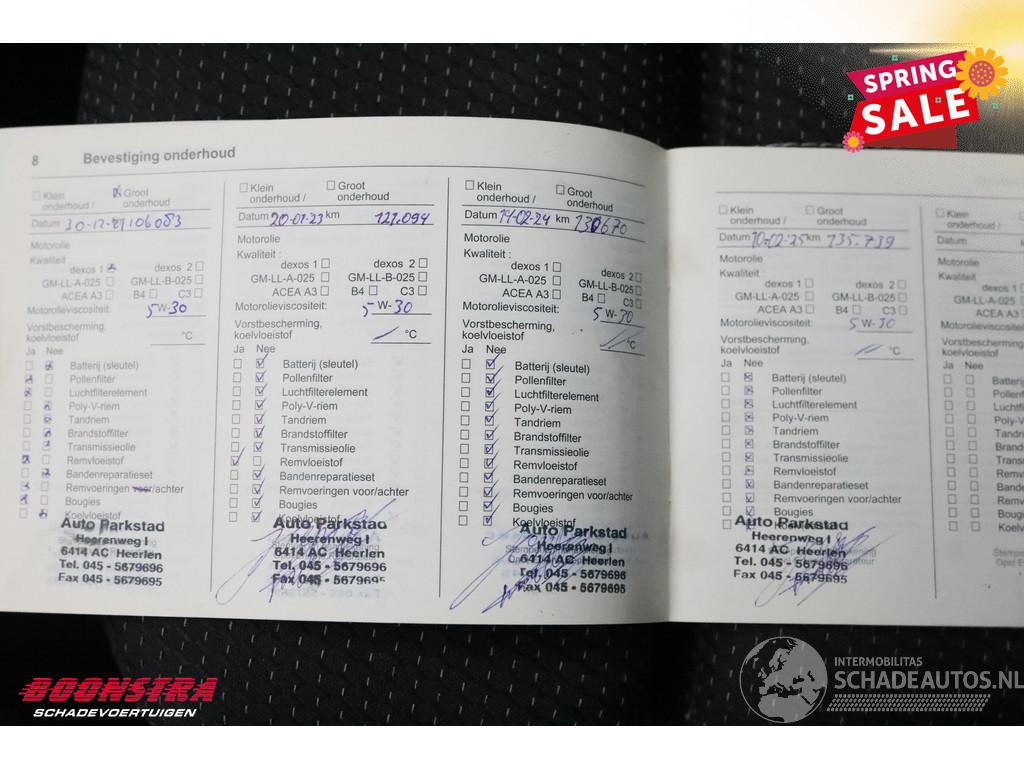 SPRING
SALE
8 Bevestiging onderhoud
Klein onderhoud / Groot onderhoud
Datum 30-12-21 106083
Motorolie
Kwaliteit :
dexos 1 dexos 2
GM-LL-A-025 GM-LL-B-025
ACEA A3 B4 C3
Motorolieviscositeit: 5 W-30
Vorstbescherming,
koelvloeistof °C
Ja Nee
Batterij (sleutel)
Pollenfilter
Luchtfilterelement
Poly-V-riem
Tandriem
Brandstoffilter
Transmissieolie
Remvloeistof
Bandenreparatieset
Remvoeringen voor/achter
Bougies
Koelvloeistof
Auto Parkstad
Heerenweg I
6414 AC Heerlen
Tel. 045 - 5679696
Fax 045 - 5679695
Klein onderhoud / Groot onderhoud
Datum 20-01-23 km 121.094
Motorolie
Kwaliteit :
dexos 1 dexos 2
GM-LL-A-025 GM-LL-B-025
ACEA A3 B4 C3
Motorolieviscositeit: 5 W-30
Vorstbescherming,
koelvloeistof °C
Ja Nee
Batterij (sleutel)
Pollenfilter
Luchtfilterelement
Poly-V-riem
Tandriem
Brandstoffilter
Transmissieolie
Remvloeistof
Bandenreparatieset
Remvoeringen voor/achter
Bougies
Koelvloeistof
Auto Parkstad
Heerenweg I
6414 AC Heerlen
Tel. 045 - 5679696
Fax 045 - 5679695
Klein onderhoud / Groot onderhoud
Datum 14-02-24 km 130670
Motorolie
Kwaliteit :
dexos 1 dexos 2
GM-LL-A-025 GM-LL-B-025
ACEA A3 B4 C3
Motorolieviscositeit: 5 W-30
Vorstbescherming,
koelvloeistof °C
Ja Nee
Batterij (sleutel)
Pollenfilter
Luchtfilterelement
Poly-V-riem
Tandriem
Brandstoffilter
Transmissieolie
Remvloeistof
Bandenreparatieset
Remvoeringen voor/achter
Bougies
Koelvloeistof
Auto Parkstad
Heerenweg I
6414 AC Heerlen
Tel. 045 - 5679696
Fax 045 - 5679695
Klein onderhoud / Groot onderhoud
Datum 10-02-25 km 135.739
Motorolie
Kwaliteit
dexos 1 dexos 2
GM-LL-A-025 GM-LL-B-025
ACEA A3 B4 C3
Motorolieviscositeit: 5 W-30
Vorstbescherming,
koelvloeistof °C
Ja Nee
Batterij (sleutel)
Pollenfilter
Luchtfilterelement
Poly-V-riem
Tandriem
Brandstoffilter
Transmissieolie
Remvloeistof
Bandenreparatieset
Remvoeringen voor/achter
Bougies
Auto Parkstad
Heerenweg I
6414 AC Heerlen
Tel. 045 - 5679696
Fax 045 - 5679695
Klein
onderhoud /
Datum
Motorolie
Kwaliteit
GM-LL-A-025
ACEA A3
Motorolieviscosite
Vorstbescherming
koelvloeistof
Ja Nee
Batterij
Pollenf
Luchtfil
Poly-V
Tandri
Brand
Trans
Remv
Band
Rem
Boug
Koel
Stempel
Opel E
BOONSTRA
SCHADEVOERTUIGEN
INTERMOBILITAS
SCHADEAUTOS.NL